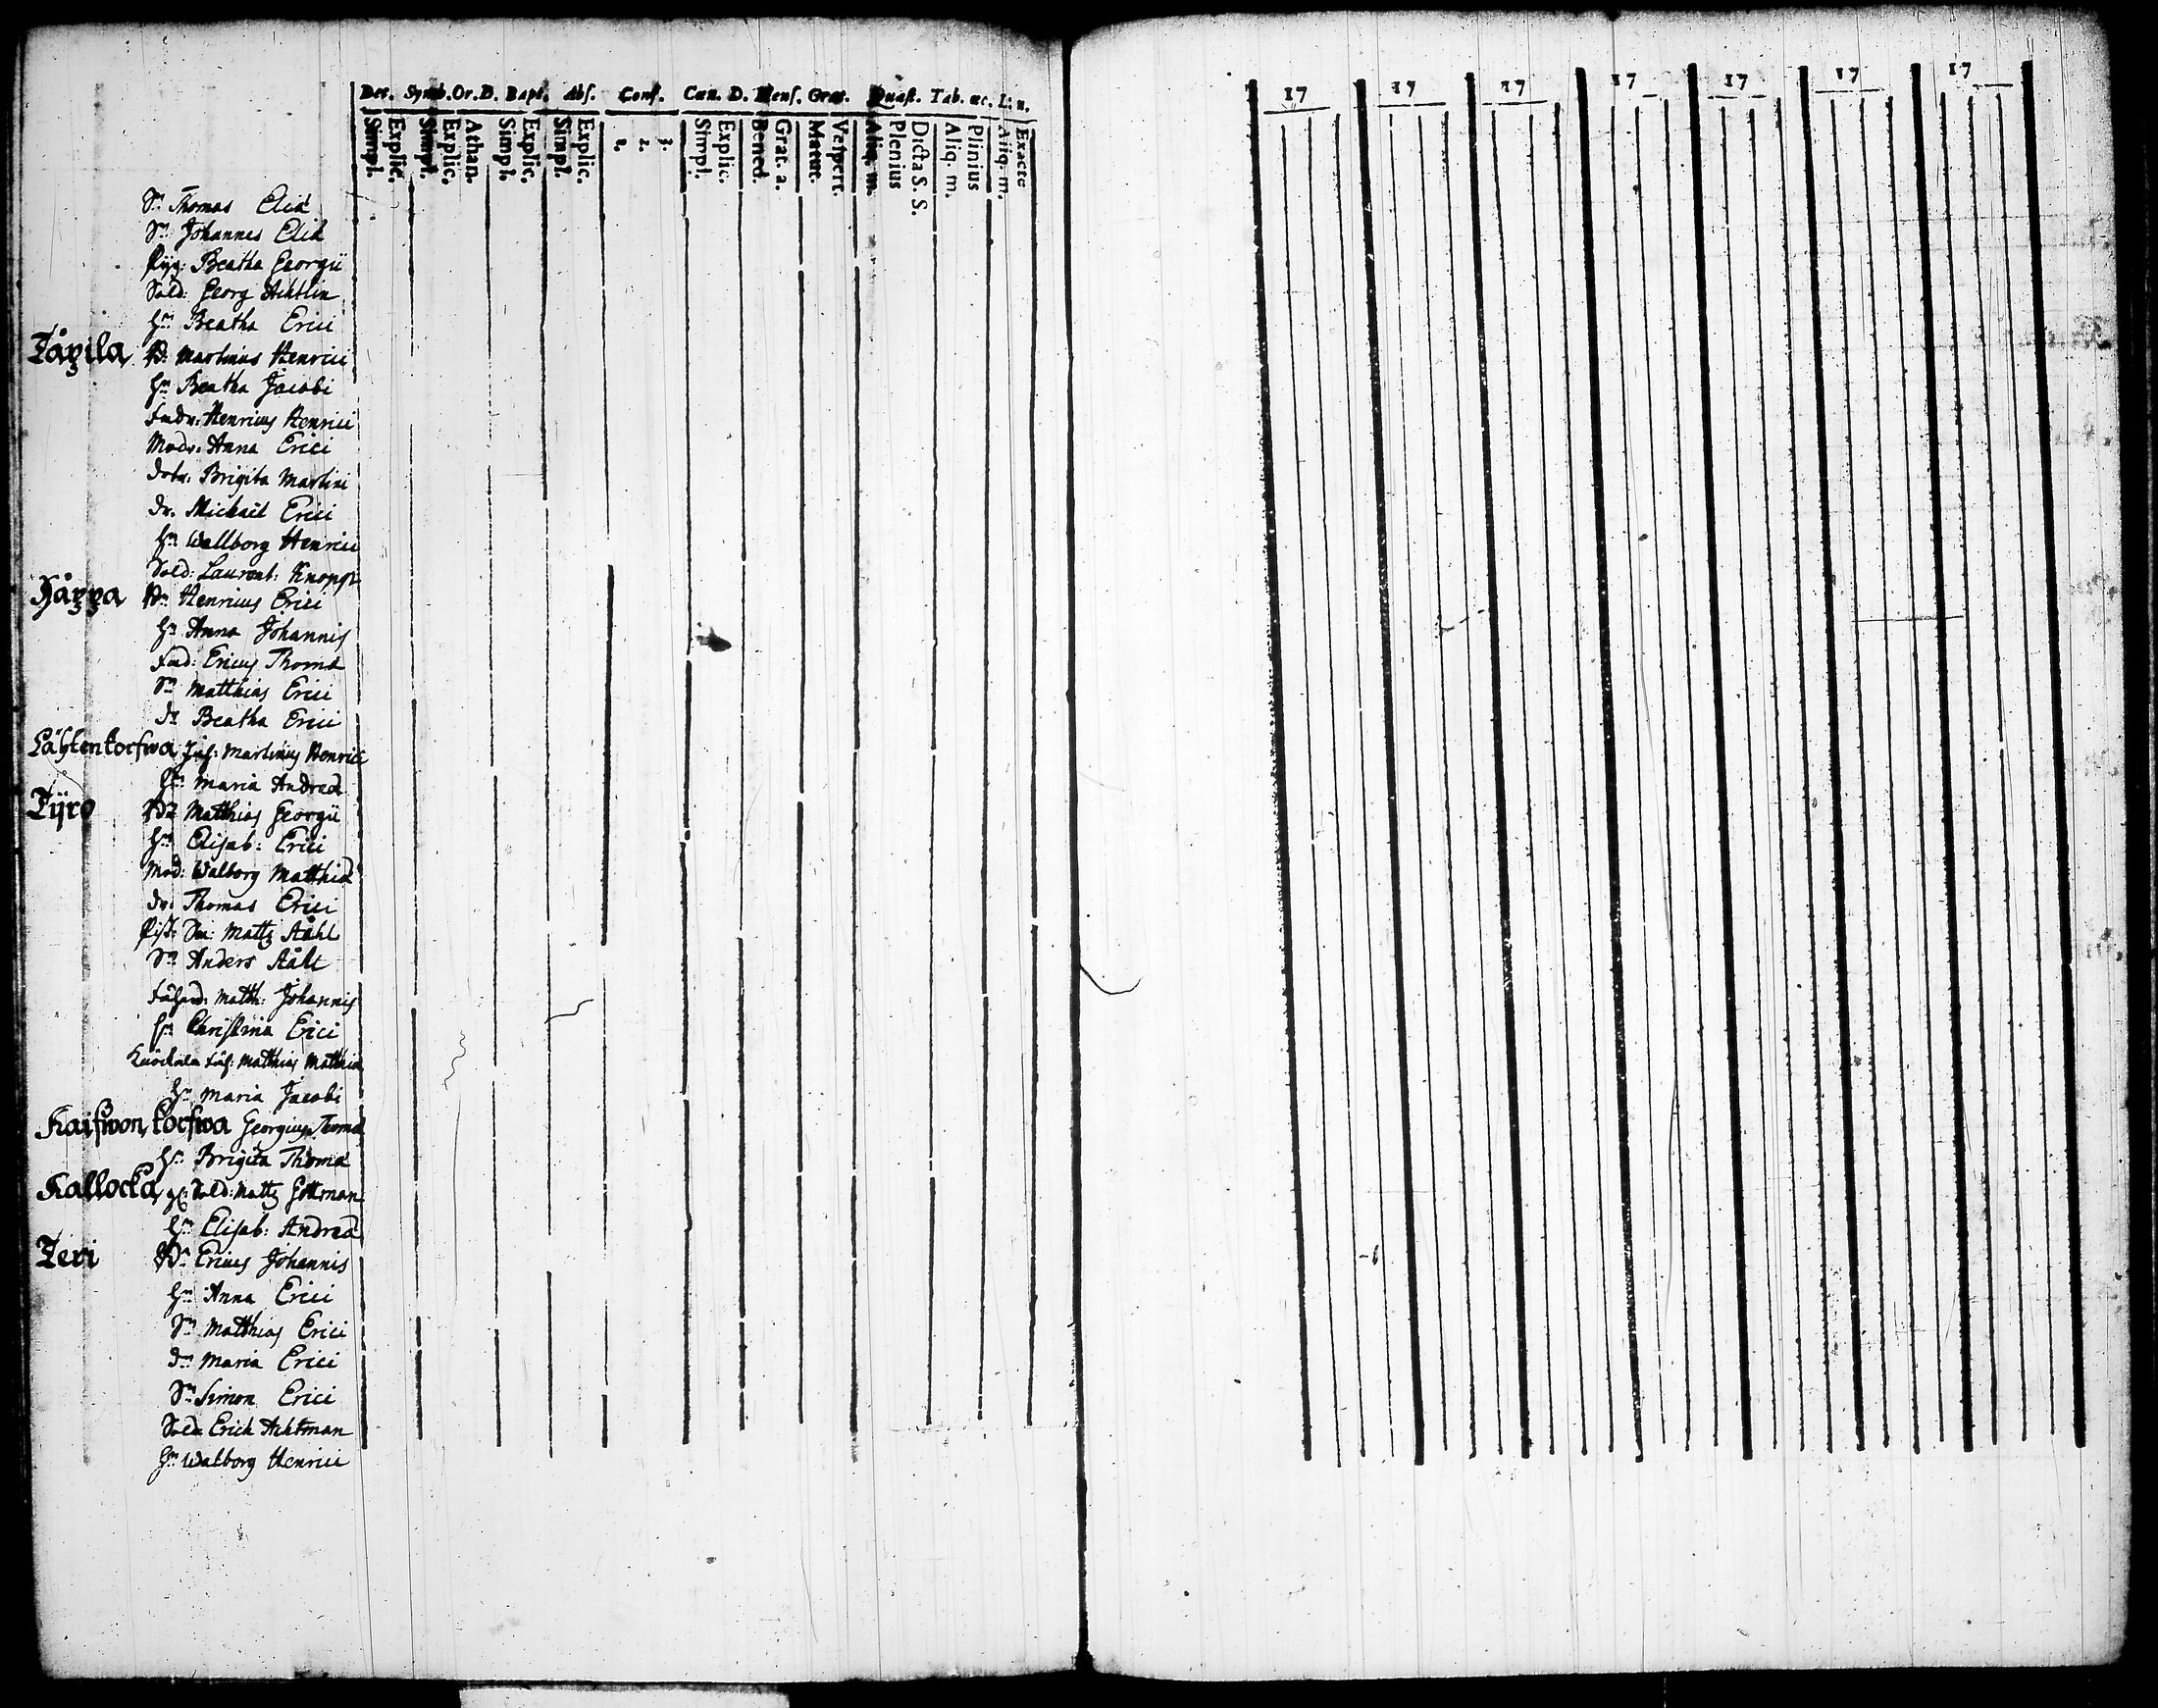 Dec. Symb. Or. D. Bapt. Abs. Conf. Cœn. D. Mens. Grat. Quæst. Tab. œc. L. n.
Simpl. Explic. Simpl. Explic. Athan. Simpl. Explic. Simpl. Explic. 1. 2. 3. Simpl. Explic. Bened. Grat. a. Matut. Vespert. Aliq. m. Plenius Dicta S. S. Aliq. m. Plinius Aliq. m. Exacte
17 17 17 17 17 17 17
Sn: Thomas Eliæ
Sn: Johannes Eliæ
Pig: Beatha Georgii
Sold: Georg Achtlin
Hu: Beatha Erici
Täpila B: Martinus Henrici
Hu: Beatha Jacobi
Henricus Henrici
Anna Erici
Brigita Martini
Dr. Michael Erici
Hu: Wallborg Henrici
Sold: Laurent: Knopp
Häppa Bn: Henricus Erici
Hu: Anna Johannis
Ericus Thomæ
Sn: Matthias Erici
Dr: Beatha Erici
Lähtenkorfwa Inh: Martinus Henrici
Hu: Maria Andreæ
Tÿrö Matthias Georgii
Hu: Elisab: Erici
Mod: Walborg Matthiæ
Dr: Thomas Erici
Matts Åahl
Sn: Anders Åahl
Matth: Johannis
Hu: Christina Erici
Matthias Matthiæ
Hu: Maria Jacobi
Kaifwon korfwa Georgius Thomæ
Hu: Brigita Thomæ
Kallocka Sold: Matts Gottman
Hu: Elisab: Andreæ
Teri Bn: Ericus Johannis
Hu: Anna Erici
Sn: Matthias Erici
Dr: Maria Erici
Sn: Simon Erici
Sold: Erich Achtman
Hu: Walborg Henrici